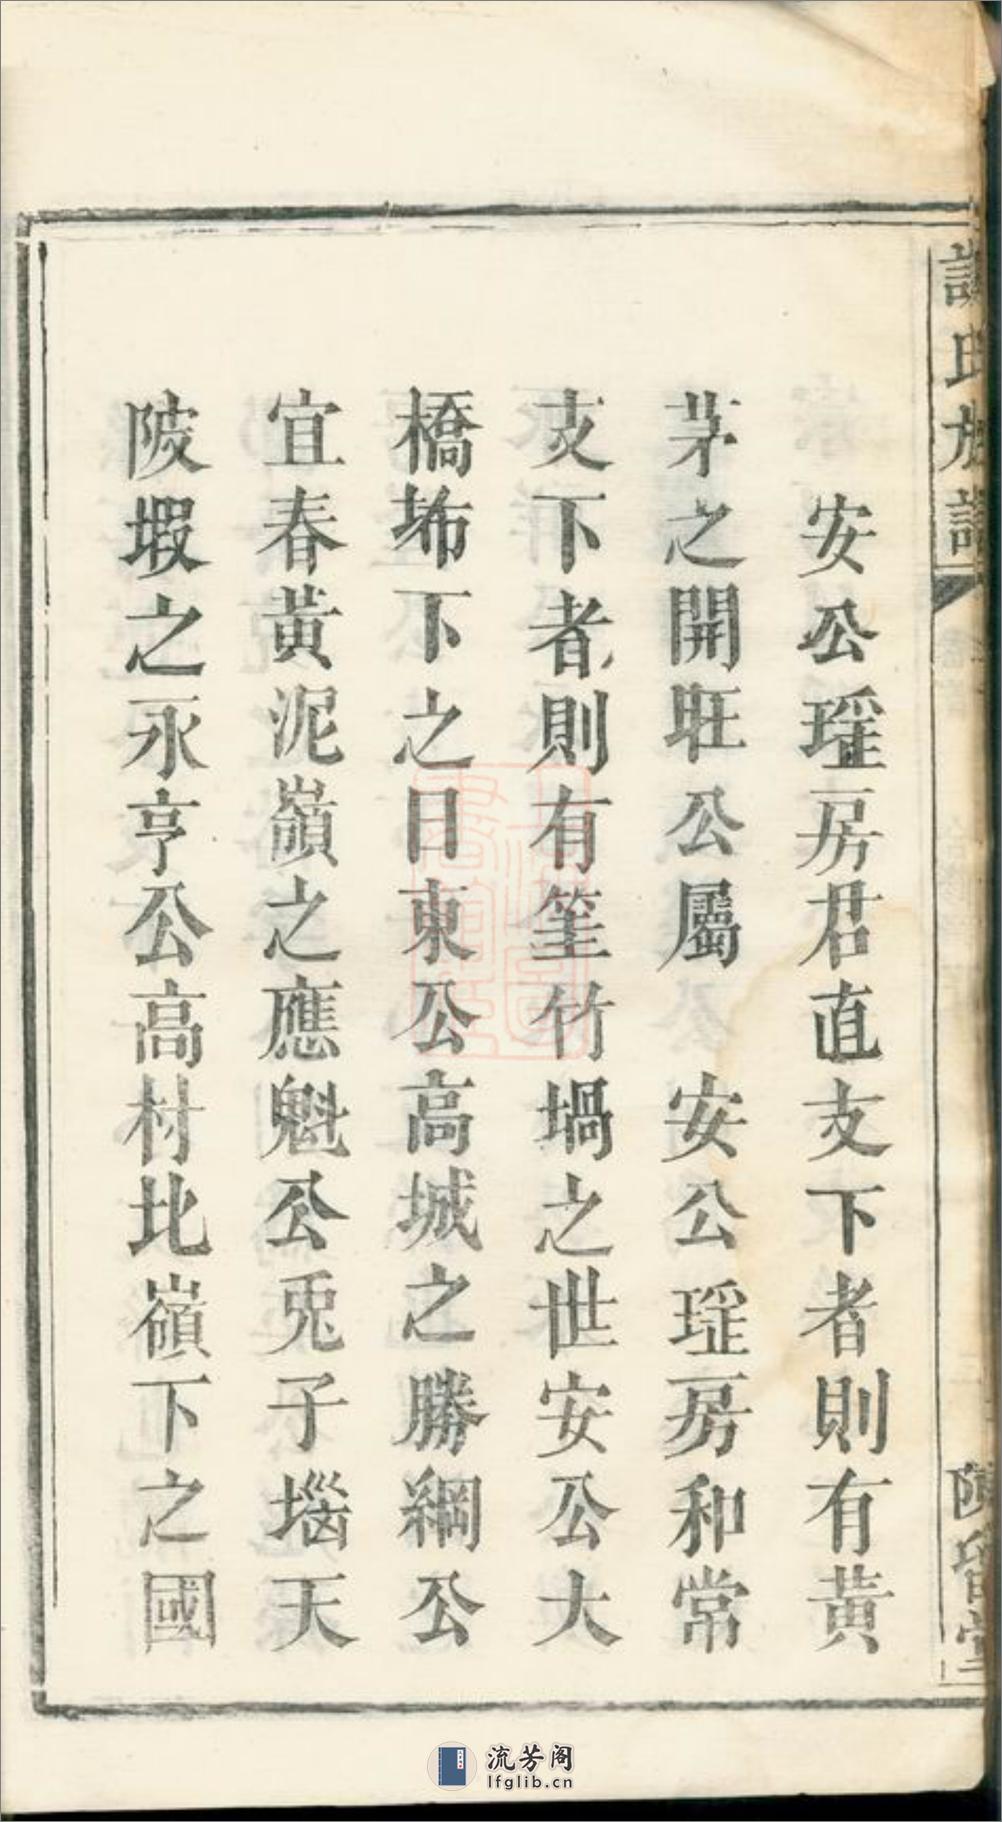 安公瑆房君直支下者則有黃
茅之開旺公屬　安公瑆房和常
支下者則有篁竹堝之世安公大
橋㘵下之目東公高城之勝綱公
宜春黃泥嶺之應魁公兎子堖天
陂塅之永亨公高村北嶺下之國
氏族譜
留堂
流芳阁
lfglib.cn